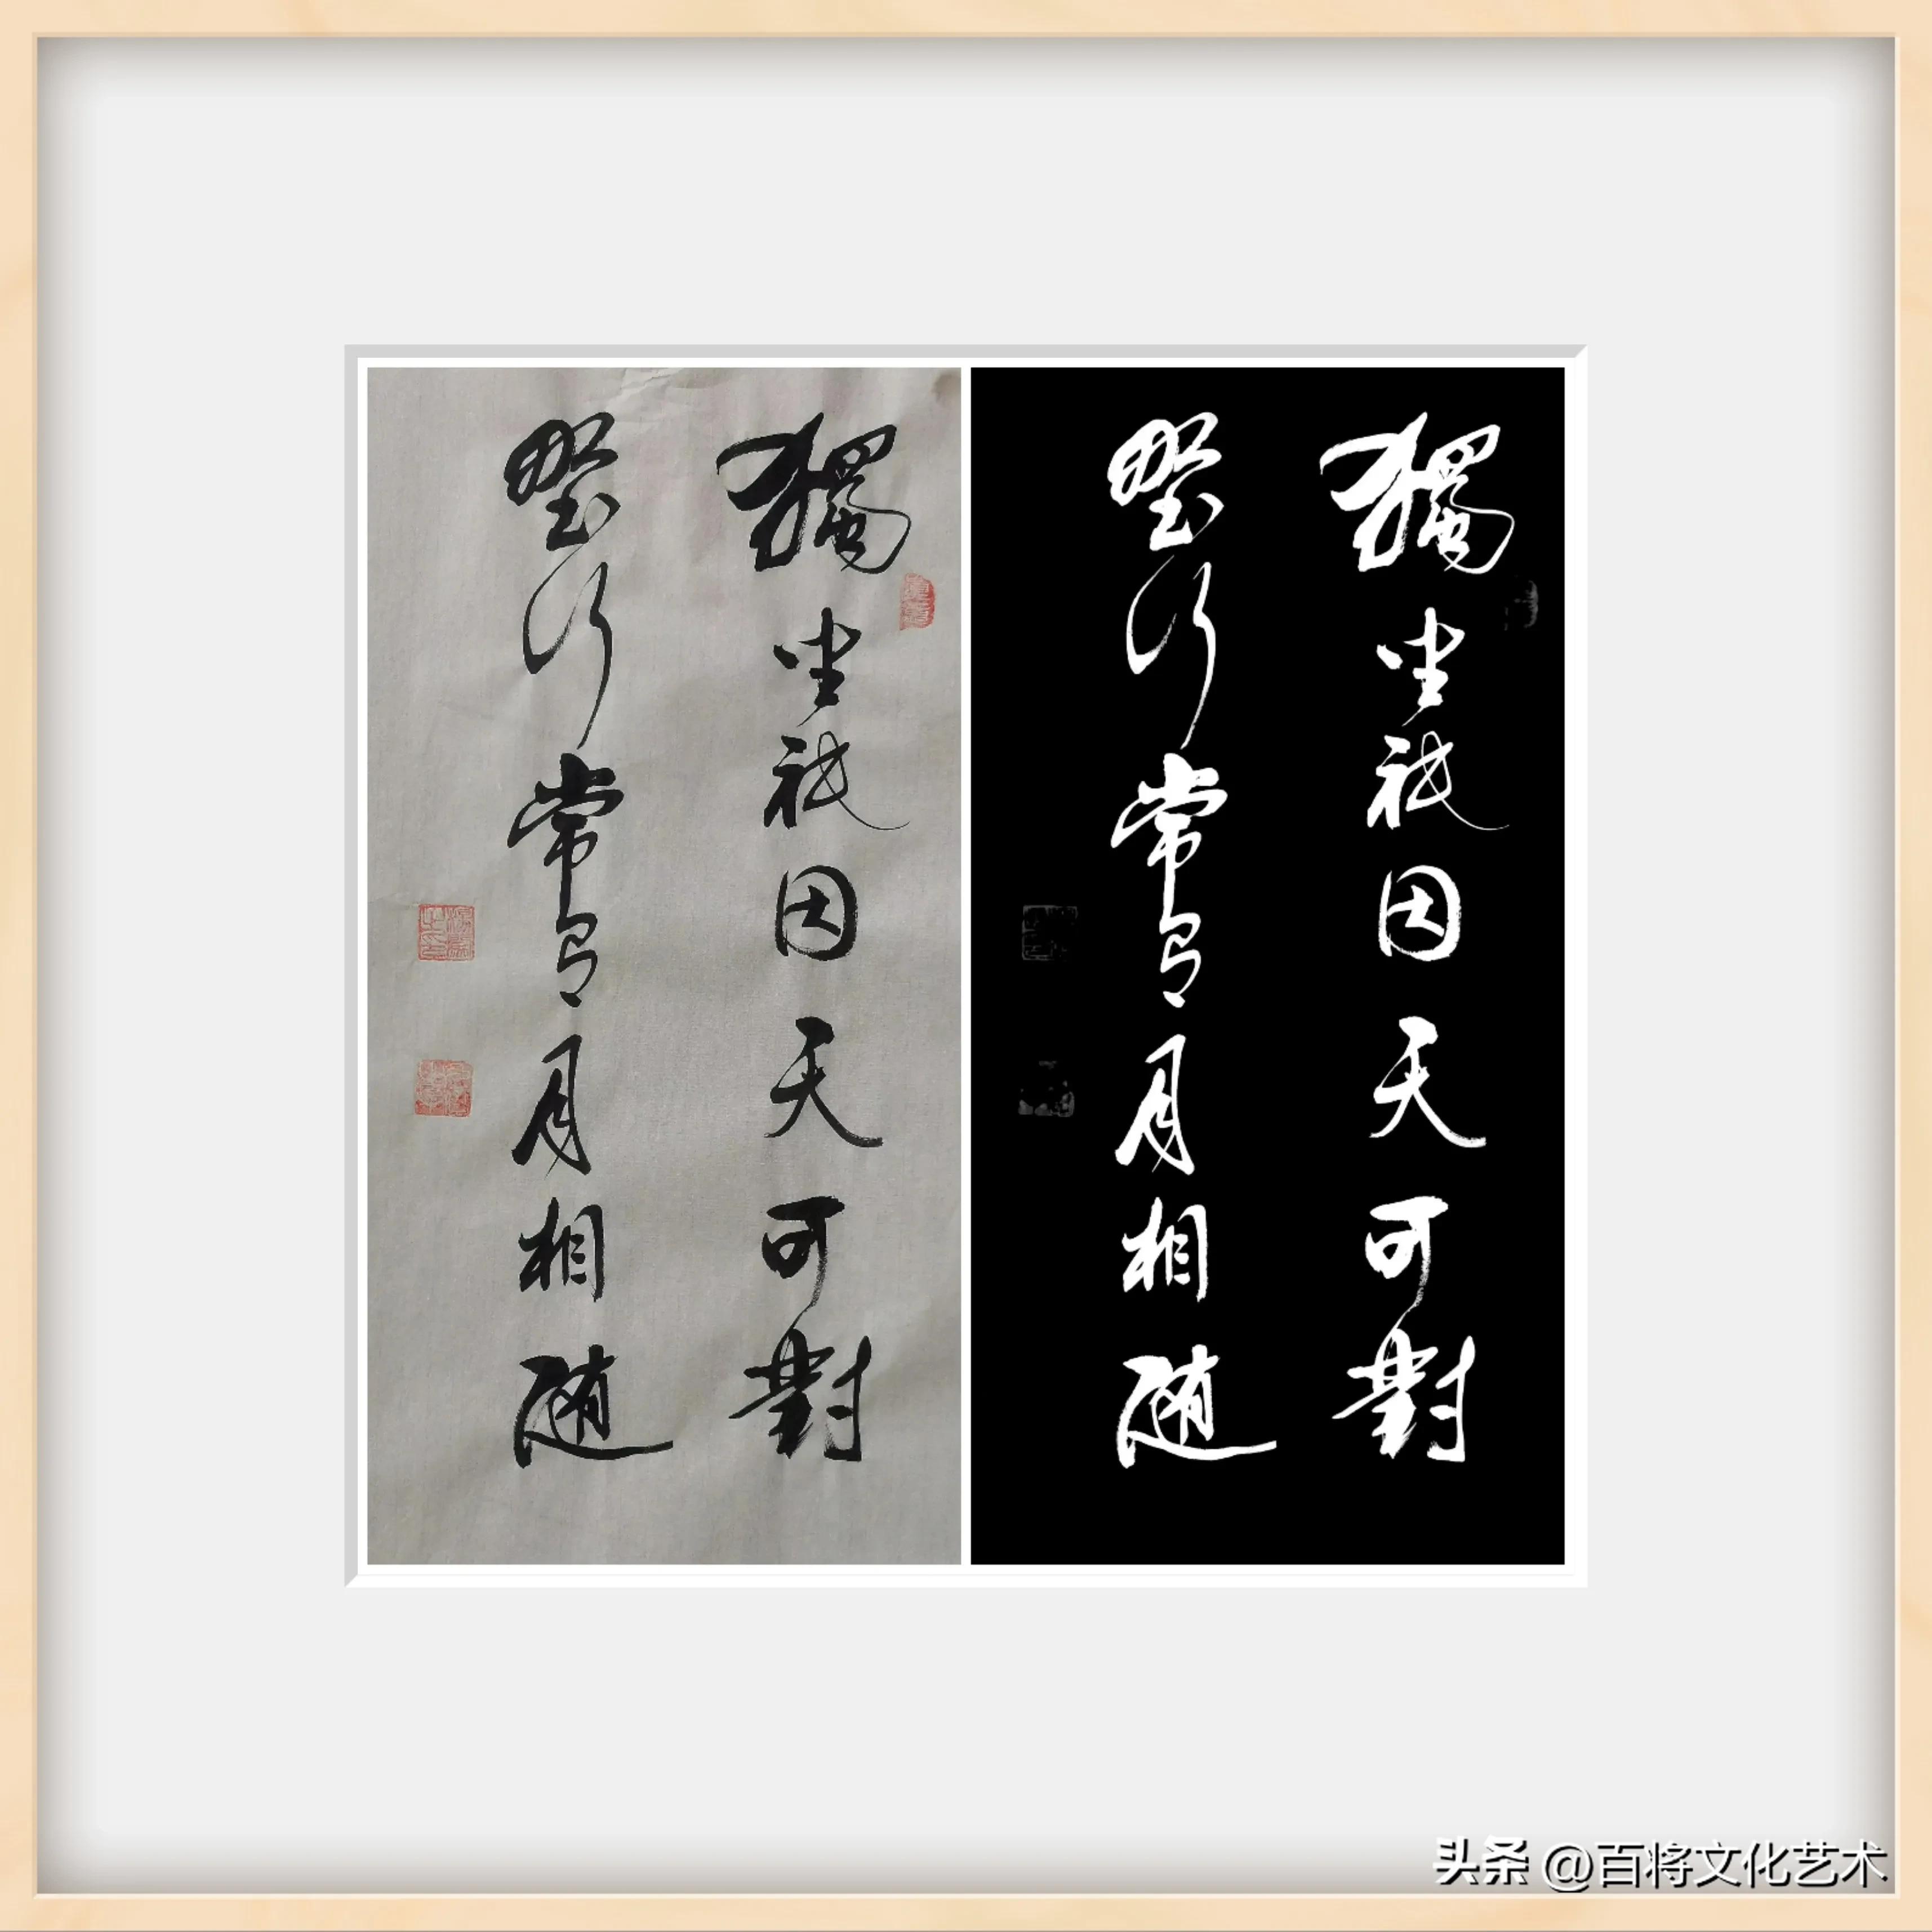 獨坐祇因天可對
行常月相隨
獨坐祇因天可對
行常月相隨
头条 @百将文化艺术